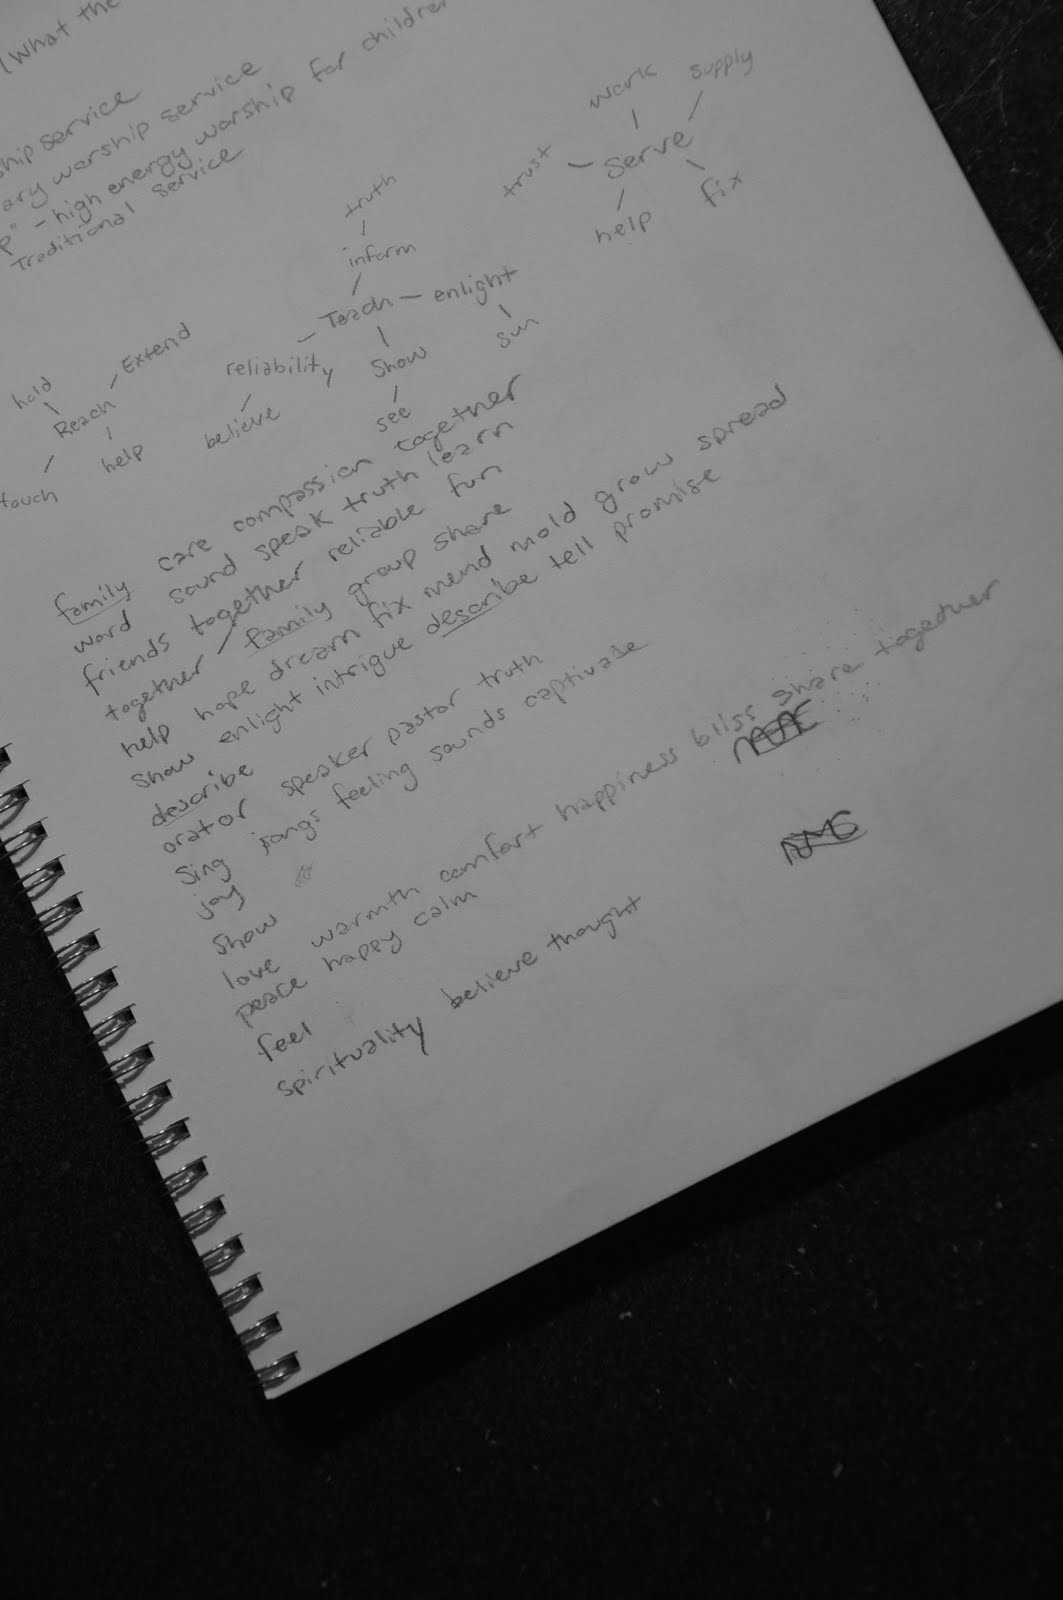 (What the
ship service
ary worship service
p" - high energy worship for children
Traditional Service
work supply
trust - Serve
help fix
truth
inform
Teach - enlight
reliability show sun
believe see
hold Extend
Reach
touch help
family care compassion together
word sound speak truth learn
friends together reliable fun
together / family group share
help hope dream fix mend mold grow spread
show enlight intrigue describe tell promise
describe
orator speaker pastor truth
sing songs feeling sounds captivate
joy
show
love warmth comfort happiness bliss share together
peace happy calm
feel
spirituality believe thought